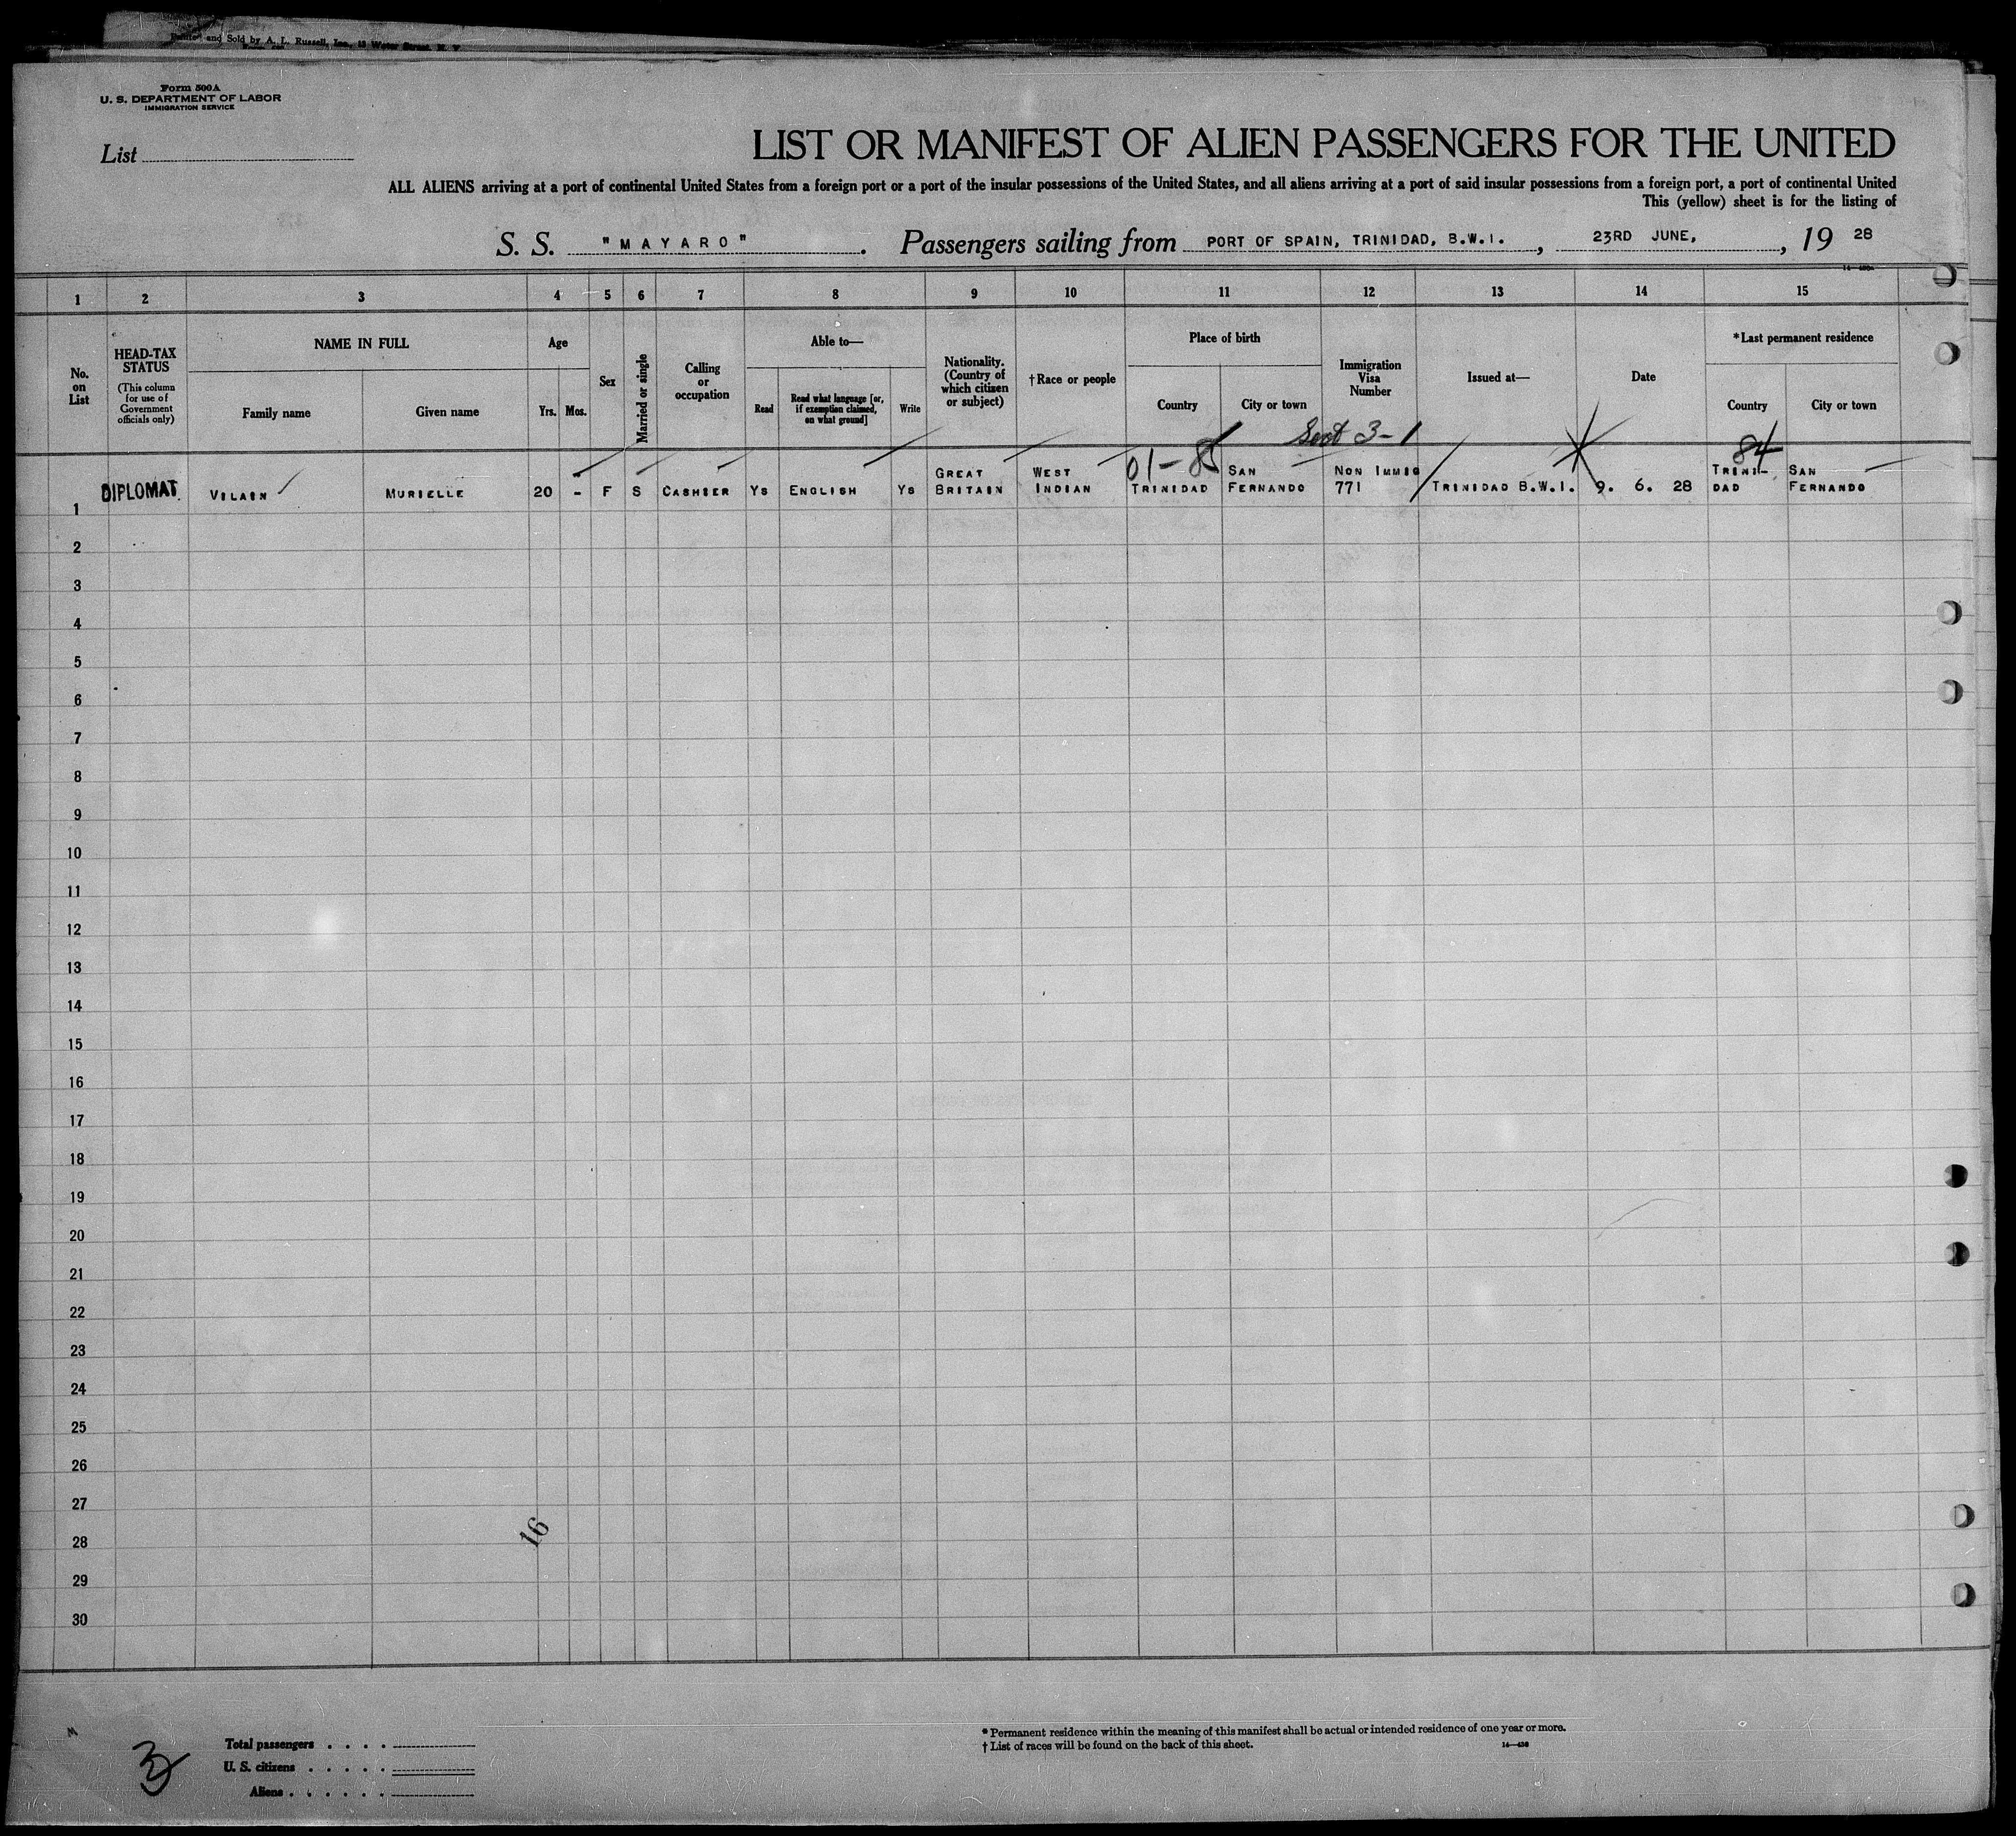 and Sold by A. L. Russell, Inc., 13 Water Street, N. Y.
Form 500A
U. S. DEPARTMENT OF LABOR
IMMIGRATION SERVICE
List
LIST OR MANIFEST OF ALIEN PASSENGERS FOR THE UNITED
ALL ALIENS arriving at a port of continental United States from a foreign port or a port of the insular possessions of the United States, and all aliens arriving at a port of said insular possessions from a foreign port, a port of continental United
This (yellow) sheet is for the listing of
S. S. "MAYARO". Passengers sailing from PORT OF SPAIN, TRINIDAD, B.W.I., 23RD JUNE, , 19 28
1 2 3 4 5 6 7 8 9 10 11 12 13 14 15
No. on List
HEAD-TAX STATUS
(This column for use of Government officials only)
NAME IN FULL
Family name
Given name
Age
Yrs.
Mos.
Sex
Married or single
Calling or occupation
Able to—
Read
Read what language [or, if exemption claimed, on what ground]
Write
Nationality. (Country of which citizen or subject)
†Race or people
Place of birth
Country
City or town
Immigration Visa Number
Issued at—
Date
*Last permanent residence
Country
City or town
Sect 3-1
01-85
84
1 DIPLOMAT VILAIN MURIELLE 20 - F S CASHIER YS ENGLISH YS GREAT BRITAIN WEST INDIAN TRINIDAD SAN FERNANDO NON IMMIG 771 TRINIDAD B.W.I. 9. 6. 28 TRINI-DAD SAN FERNANDO
2
3
4
5
6
7
8
9
10
11
12
13
14
15
16
17
18
19
20
21
22
23
24
25
26
27
28
29
30
16
3
Total passengers
U. S. citizens
Aliens
* Permanent residence within the meaning of this manifest shall be actual or intended residence of one year or more.
† List of races will be found on the back of this sheet.
14—430